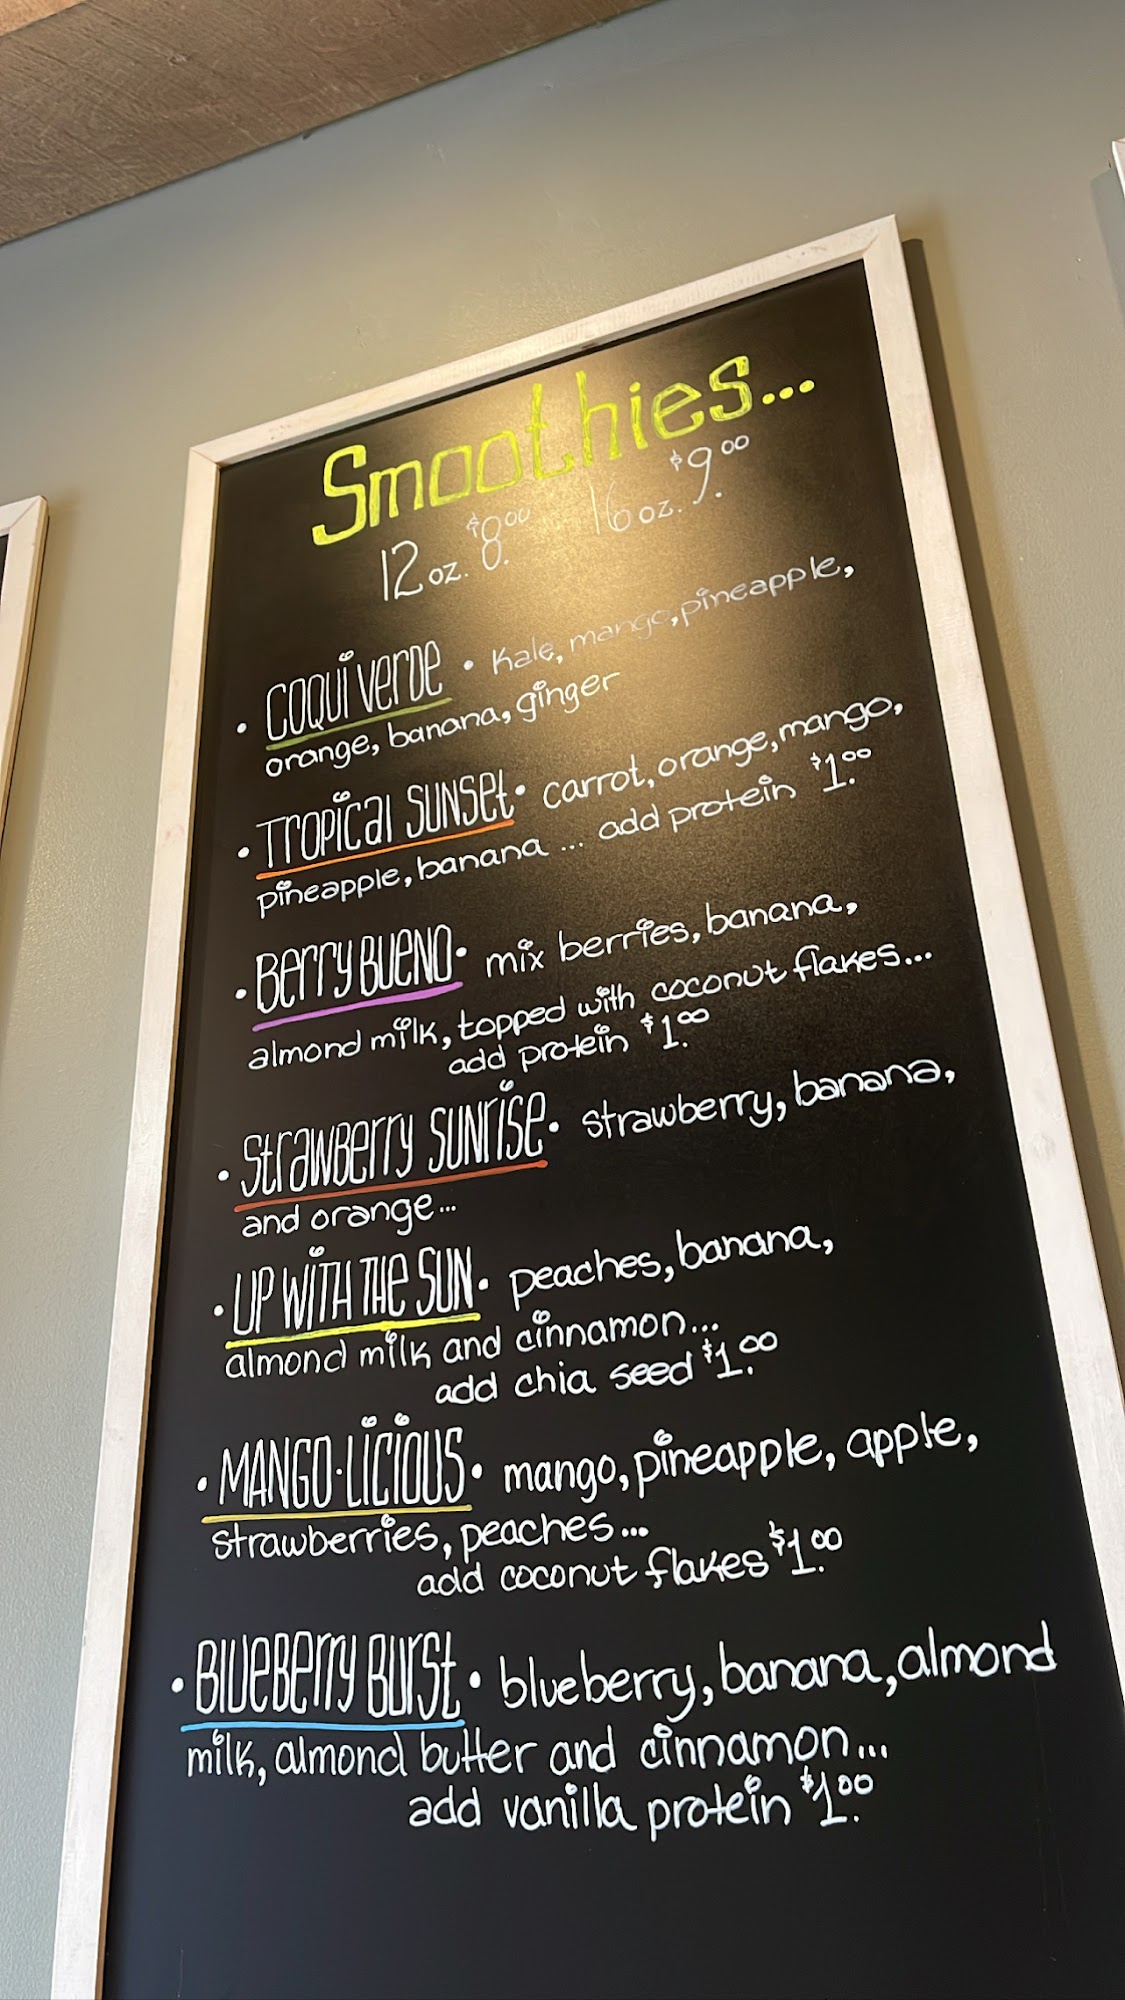 Smoothies...
12 oz. $8.00 16 oz. $9.00
• Coqui Verde • Kale, mango, pineapple,
orange, banana, ginger
• Tropical Sunset • carrot, orange, mango,
pineapple, banana ... add protein $1.00
• Berry Bueno • mix berries, banana,
almond milk, topped with coconut flakes...
add protein $1.00
• Strawberry Sunrise • strawberry, banana,
and orange...
• Up With The Sun • peaches, banana,
almond milk and cinnamon...
add chia seed $1.00
• Mango·licious • mango, pineapple, apple,
strawberries, peaches...
add coconut flakes $1.00
• Blueberry Burst • blueberry, banana, almond
milk, almond butter and cinnamon...
add vanilla protein $1.00